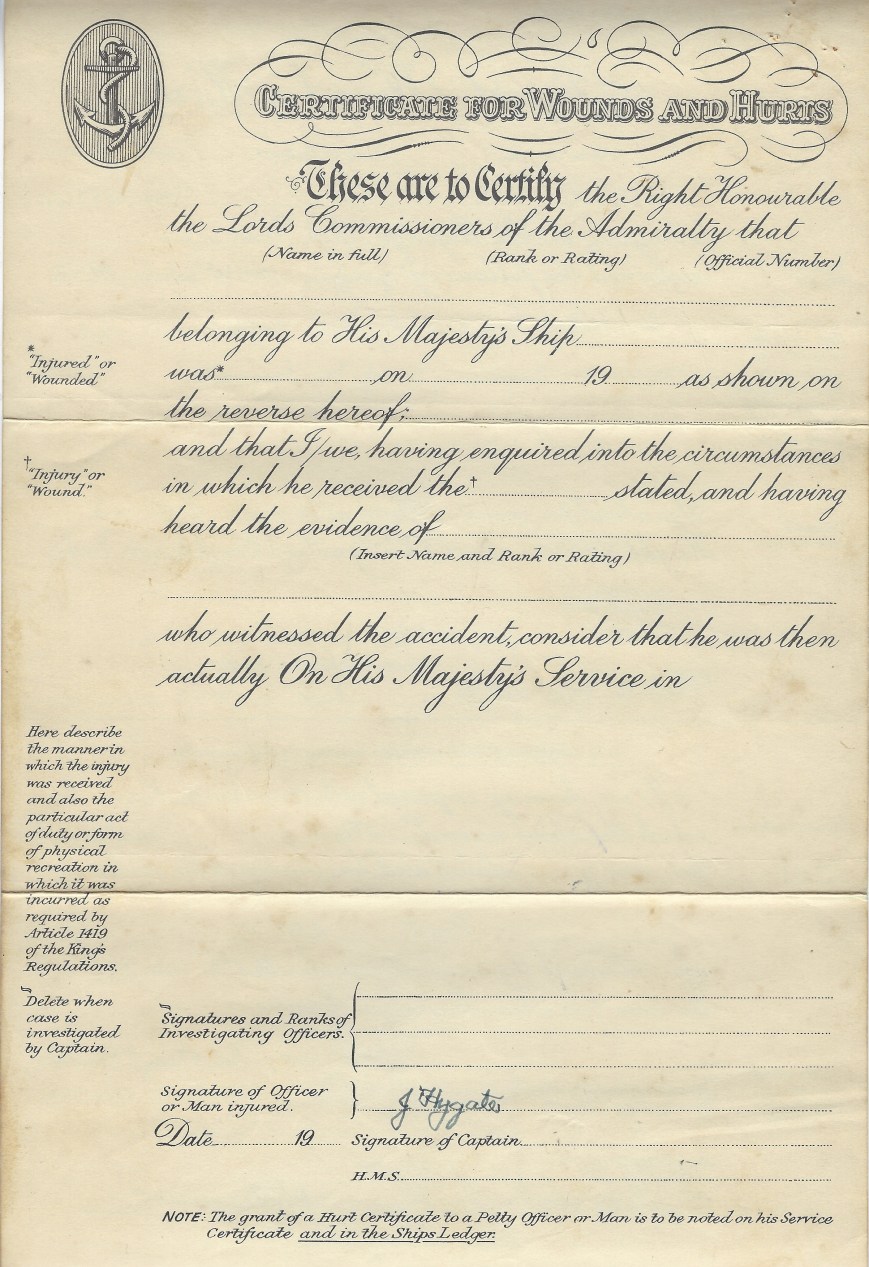 CERTIFICATE FOR WOUNDS AND HURTS
These are to Certify the Right Honourable
the Lords Commissioners of the Admiralty that
(Name in full) (Rank or Rating) (Official Number)
belonging to His Majesty's Ship
*
"Injured" or
"Wounded"
was* on 19 as shown on
the reverse hereof;
and that I/we, having enquired into the circumstances
†
"Injury" or
"Wound."
in which he received the† stated, and having
heard the evidence of
(Insert Name and Rank or Rating)
who witnessed the accident, consider that he was then
actually On His Majesty's Service in
Here describe
the manner in
which the injury
was received
and also the
particular act
of duty or form
of physical
recreation in
which it was
incurred as
required by
Article 1419
of the King's
Regulations.
Delete when
case is
investigated
by Captain.
Signatures and Ranks of
Investigating Officers.
Signature of Officer
or Man injured.
J Hygate
Date 19 Signature of Captain
H.M.S.
NOTE: The grant of a Hurt Certificate to a Petty Officer or Man is to be noted on his Service
Certificate and in the Ships Ledger.